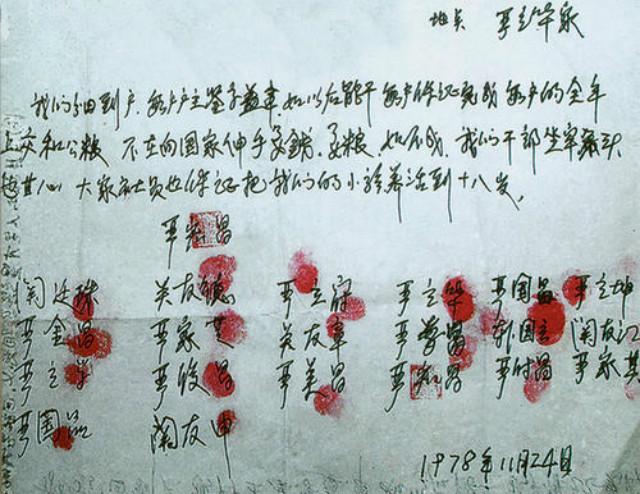 地点 严立华家
我们分田到户 每户户主签字盖章,如以后能干 每户保证完成 每户的全年
上交和公粮 不在向国家伸手要钱,要粮,如不成,我们干部坐牢杀头
也甘心 大家社员也保证把我们的小孩养活到十八岁。
严宏昌
关廷珠 关友德 严立富 严立华 严国昌 严立坤
严金昌 严家芝 关友章 严学昌 韩国云 关友江
严立学 严俊昌 严美昌 严宏昌 严付昌 严家其
严国品 关友申
1978年11月24日